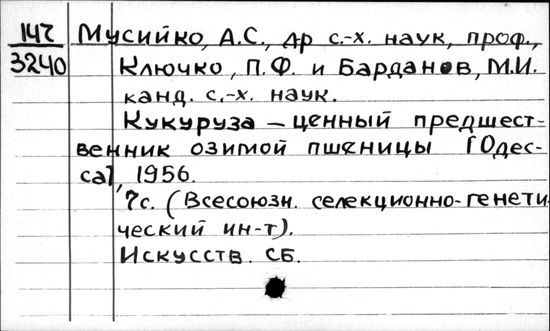 147
3240
Мусийко, А.С., др с.-х. наук, проф.,
Ключко, П.Ф. и Барданов, М.И.
канд. с.-х. наук.
Кукуруза – ценный предшест-
венник озимой пшеницы [Одес-
са], 1956.
7с. (Всесоюзн. селекционно-генети
ческий ин-т).
Искусств. сб.